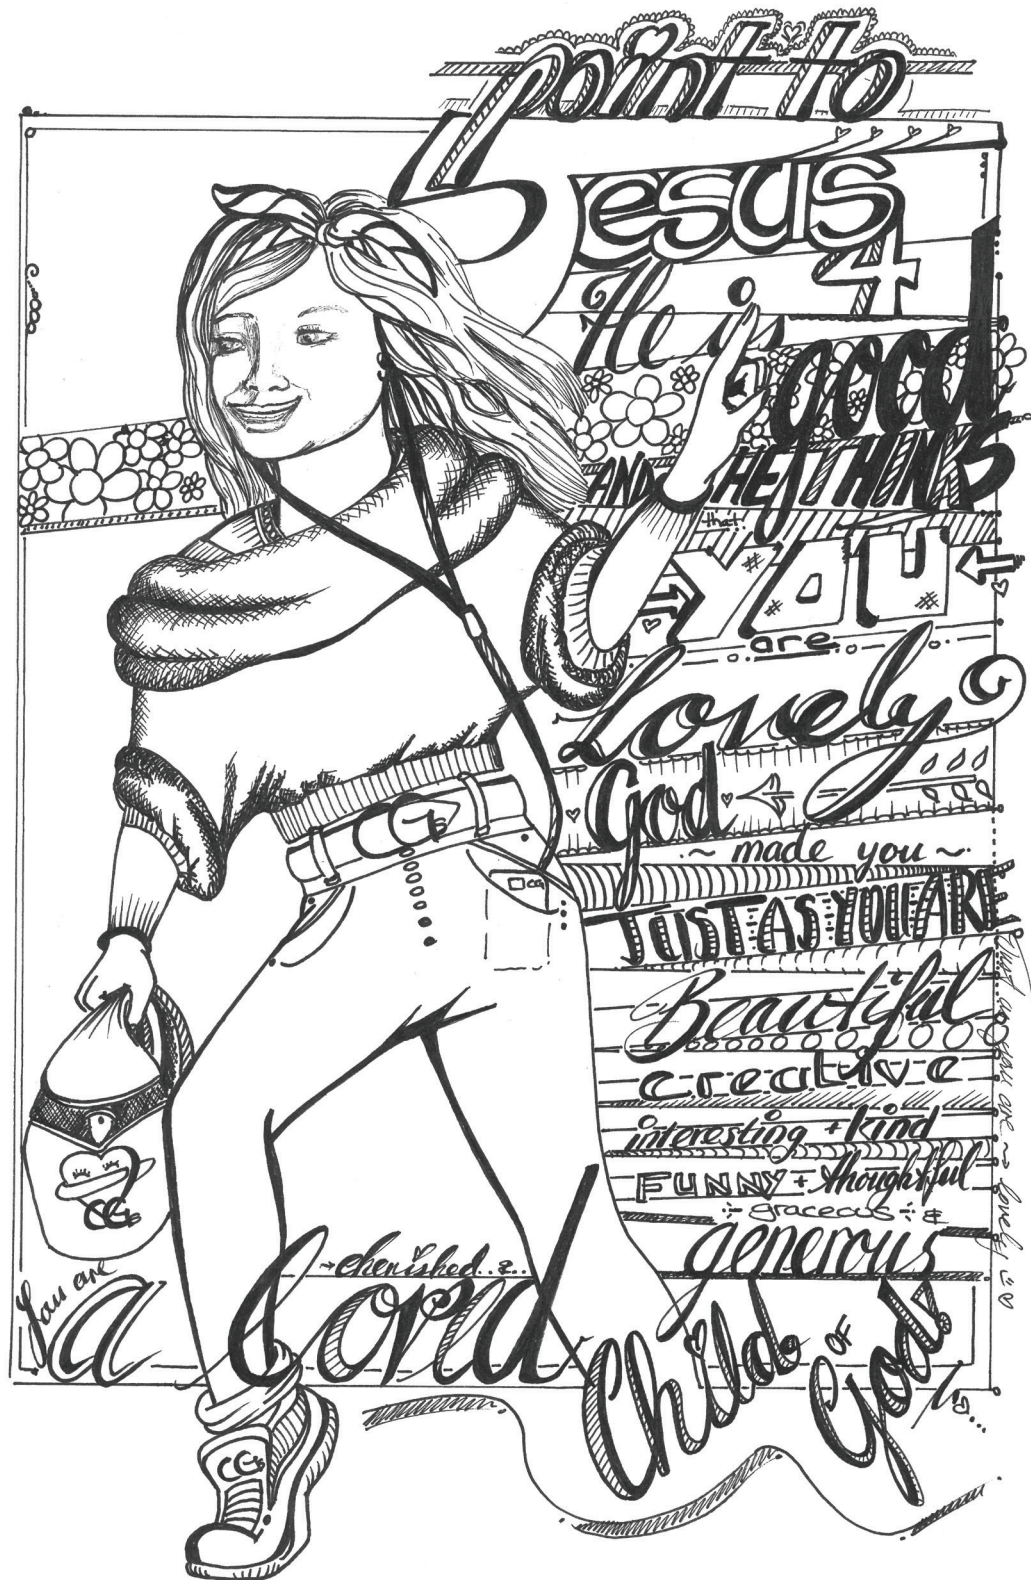 point to
Jesus
4
He is good
AND HE THINKS
that
YOU
are
Lovely
God
~ made you ~
JUST AS YOU ARE
Beautiful
creative
interesting + kind
FUNNY + thoughtful
graceous &
generous
You are
a loved
cherished &
Child OF God!
Just as you are ~ lovely
CGs
CG
CGs
CGs